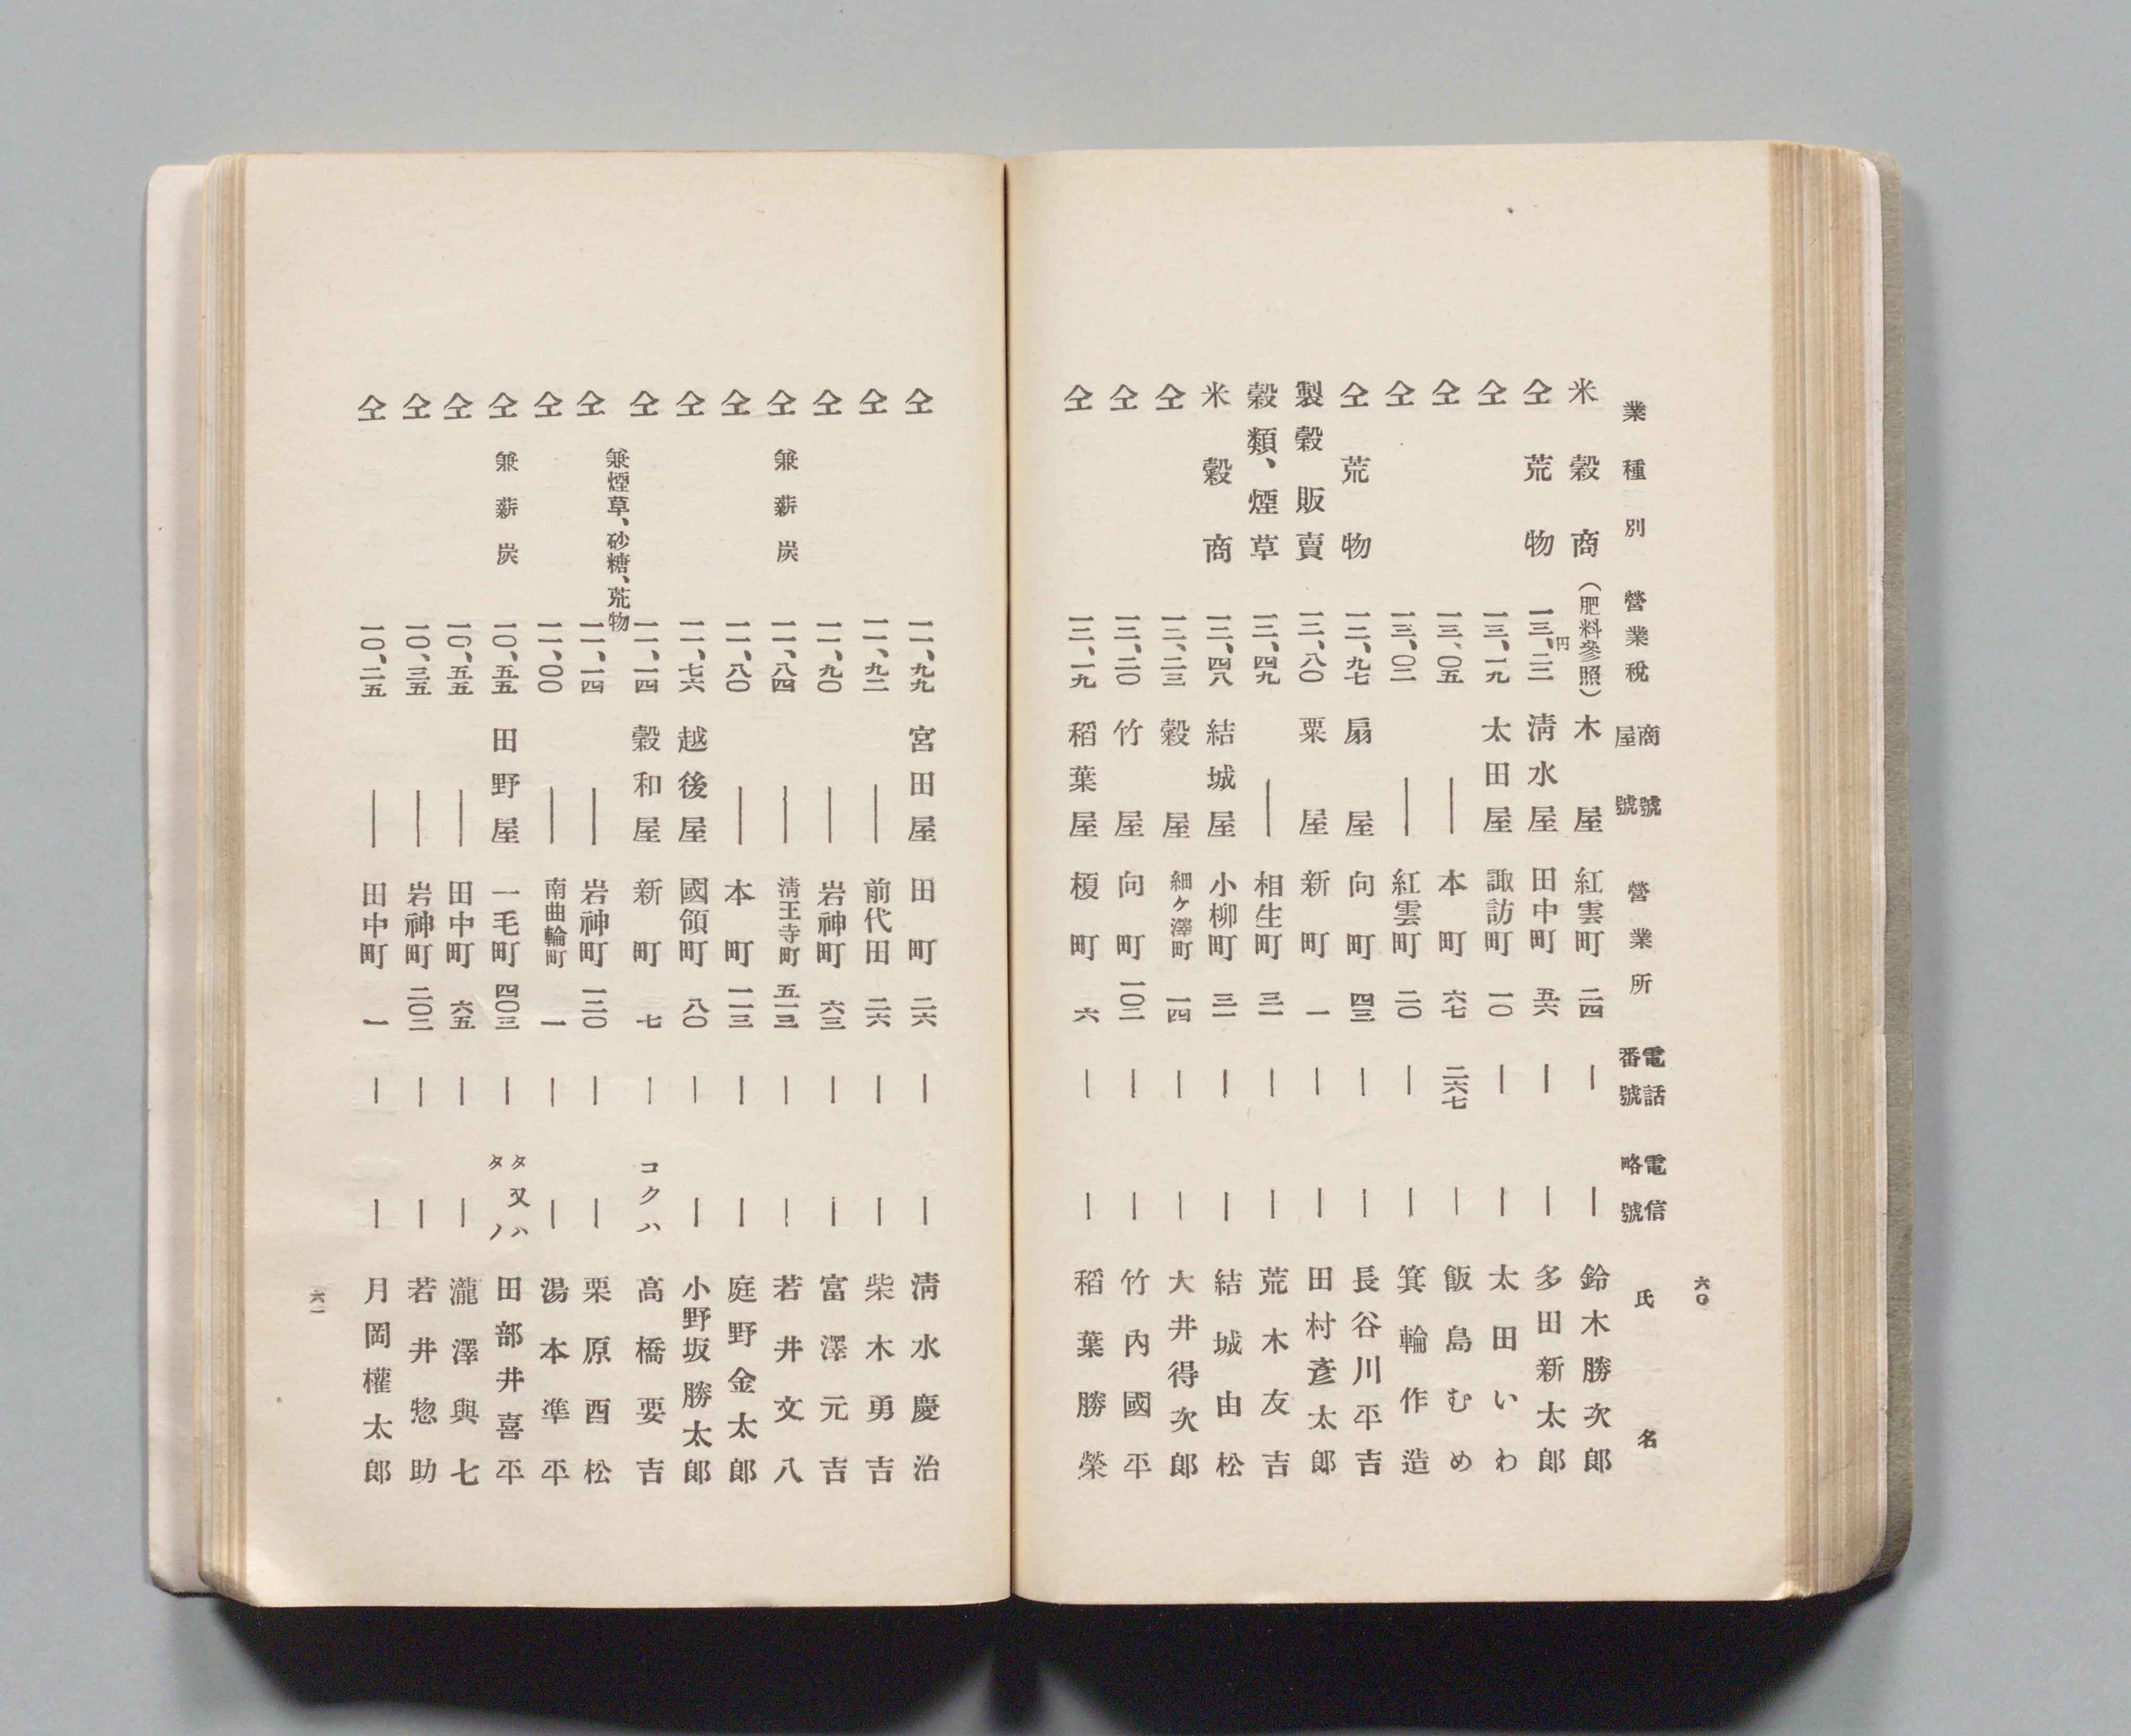 業種別 營業稅 商號屋號 營業所 電話番號 電信略號 氏名
米穀商(肥料參照) 木屋 紅雲町 二四 ― ― 鈴木勝次郎
仝荒物 一三、二二円 淸水屋 田中町 五六 ― ― 多田新太郎
仝 一三、一九 太田屋 諏訪町 一〇 ― ― 太田いわ
仝 一三、〇五 ― 本町 六七 二六七 ― 飯島むめ
仝 一三、〇二 ― 紅雲町 二〇 ― ― 箕輪作造
仝荒物 一二、九七 扇屋 向町 四三 ― ― 長谷川平吉
製穀販賣 一二、八〇 粟屋 新町 一 ― ― 田村彥太郎
穀類、煙草 一二、四九 ― 相生町 三一 ― ― 荒木友吉
米穀商 一二、四八 結城屋 小柳町 三一 ― ― 結城由松
仝 一二、二三 穀屋 細ヶ澤町 一四 ― ― 大井得次郎
仝 一二、二〇 竹屋 向町 一〇二 ― ― 竹內國平
仝 一二、一九 稻葉屋 榎町 六 ― ― 稻葉勝榮
六〇
仝 一一、九九 宮田屋 田町 二六 ― ― 淸水慶治
仝 一一、九二 ― 前代田 二六 ― ― 柴木勇吉
仝 一一、九〇 ― 岩神町 六三 ― ― 富澤元吉
仝 兼薪炭 一一、八四 ― 淸王寺町 五一三 ― ― 若井文八
仝 一一、八〇 ― 本町 一一三 ― ― 庭野金太郎
仝 一一、七六 越後屋 國領町 八〇 ― ― 小野坂勝太郎
仝 一一、一四 穀和屋 新町 七 ― コクハ 高橋要吉
兼煙草、砂糖、荒物
仝 一一、一四 ― 岩神町 一二〇 ― ― 栗原酉松
仝 一一、〇〇 ― 南曲輪町 一 ― ― 湯本準平
仝 兼薪炭 一〇、五五 田野屋 一毛町 四〇三 ― タ又ハタノ 田部井喜平
仝 一〇、五五 ― 田中町 六五 ― ― 瀧澤與七
仝 一〇、三五 ― 岩神町 二〇二 ― ― 若井惣助
仝 一〇、二五 ― 田中町 一 ― ― 月岡權太郎
六一